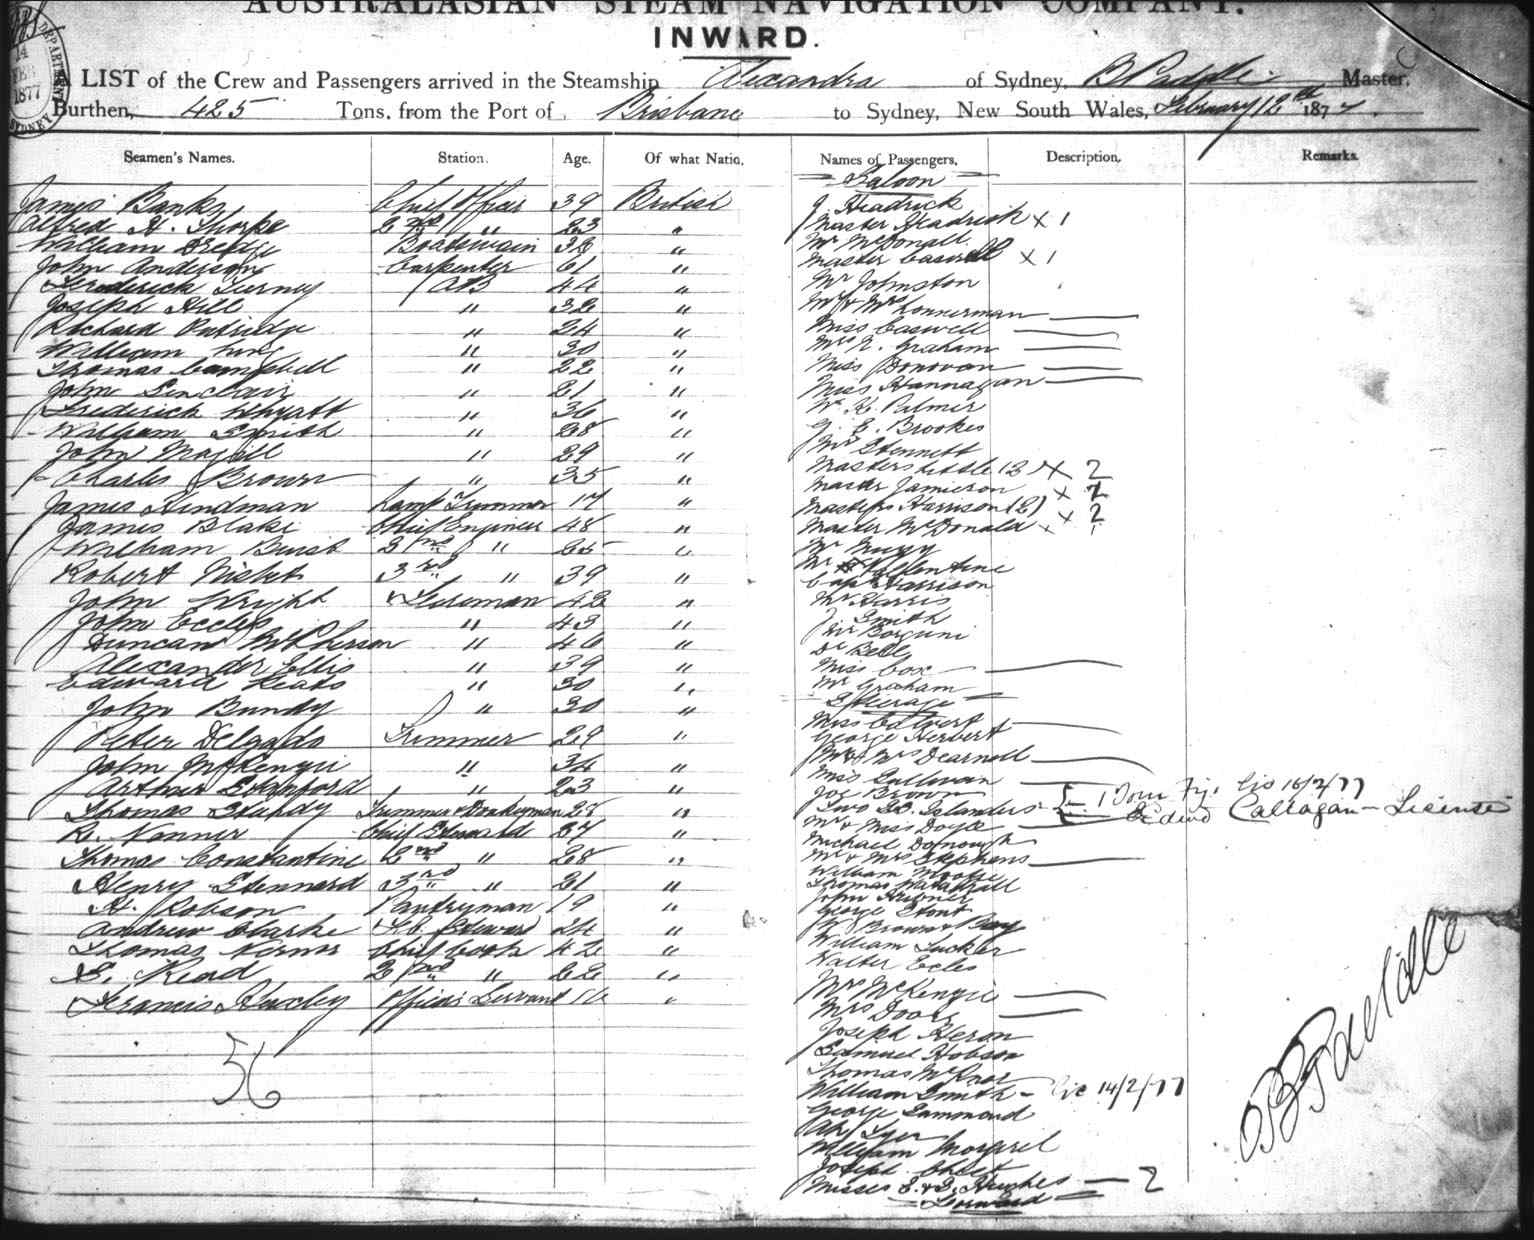 AUSTRALASIAN STEAM NAVIGATION COMPANY.
INWARD.
14
FEB
1877
SYDNEY
A LIST of the Crew and Passengers arrived in the Steamship Alexandra of Sydney, B Paddle Master.
Burthen, 425 Tons, from the Port of Brisbane to Sydney, New South Wales, February 12th 1877.
Seamen's Names. Station. Age. Of what Natio. Names of Passengers. Description. Remarks.
James Banks Chief Officer 39 British
Alfred H. Thorpe 2nd " 23 "
William Dredge Boatswain 32 "
John Anderson Carpenter 61 "
Frederick Turney AB 44 "
Joseph Hill " 32 "
Richard Putridge " 24 "
William King " 30 "
Thomas Campbell " 22 "
John Sinclair " 21 "
Frederick Whyatt " 36 "
William Smith " 28 "
John Magill " 29 "
Charles Brown " 35 "
James Hindman Lamp Trimmer 17 "
James Blake Chief Engineer 48 "
William Buist 2nd " 25 "
Robert Nisbet 3rd " 39 "
John Wright Fireman 42 "
John Eccles " 43 "
Duncan McPherson " 40 "
Alexander Ellis " 39 "
Edward Keats " 30 "
John Bundy " 30 "
Peter Delgado Trimmer 29 "
John McKenzie " 34 "
Arthur Stanford " 23 "
Thomas Sturdy Trimmer & Donkeyman 25 "
R. Nenner Chief Steward 37 "
Thomas Constantine 2nd " 28 "
Henry Stennard 3rd " 21 "
H. Robson Pantryman 19 "
Andrew Clarke F.C. Steward 24 "
Thomas Norris Chief Cook 42 "
E. Read 2nd " 22 "
Francis Huxley Officers Servant 16 "
56
Saloon
J Headrick
Master Headrick x 1
Mr McDonall
Master Caswell x 1
Mr Johnston
Mr & Mrs Lonnerman
Miss Caswell
Mrs J. Graham
Miss Donovan
Miss Hannagan
Mr H. Palmer
G. E. Brookes
Mr Stennett
Masters Liddle (2) x 2
Master Jamieson x 1
Masters Harrison (2) x 2
Master McDonald x 1
Mr Nugg
Mr Vallentine
Capt Harrison
Mr Harris
J Smith
Mr Borguni
Dr Bell
Miss Cox
Mr Graham
Steerage
Miss Colvert
George Herbert
Mr & Mrs Dearnell
Miss Sullivan
Joe Brown
Two So. Islanders 1 Tom Fiji lis 16/2/77
Callagan — License
Mr & Miss Doyle
Michael Donough
Mr & Mrs Stephens
William Moore
Thomas
John Hugner
George Stone
J Brown & Boy
William Tucker
Walter Eccles
Mrs McKenzie
Mrs Doole
Joseph Heron
Samuel Hobson
Thomas McKnoe
William Smith - lic 14/2/77
George Hammond
Ah Lyer
William Morgarel
Joseph Chest
Misses E. & S. Hughes — 2
Forward
B Paddle